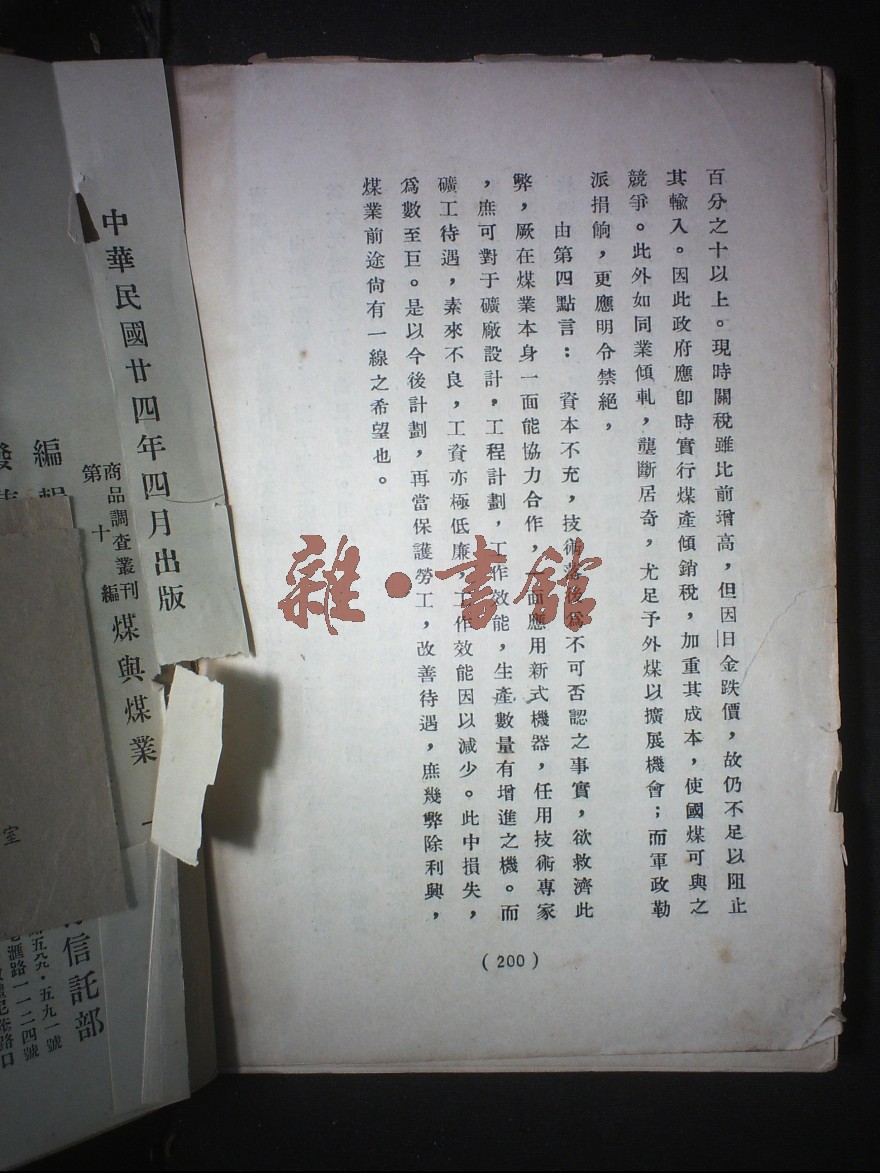 百分之十以上。現時關稅雖比前增高，但因日金跌價，故仍不足以阻止
其輸入。因此政府應卽時實行煤產傾銷稅，加重其成本，使國煤可與之
競爭。此外如同業傾軋，壟斷居奇，尤足予外煤以擴展機會；而軍政勒
派捐餉，更應明令禁絕，
由第四點言：　資本不充，技術落後爲不可否認之事實，欲救濟此
弊，厥在煤業本身一面能協力合作，一面應用新式機器，任用技術專家
，庶可對于礦廠設計，工程計劃，工作效能，生產數量有增進之機。而
礦工待遇，素來不良，工資亦極低廉，工作效能因以減少。此中損失，
爲數至巨。是以今後計劃，再當保護勞工，改善待遇，庶幾弊除利興，
煤業前途尙有一線之希望也。
(200)
雜·書館
中華民國廿四年四月出版
商品調查叢刊
第十編
煤與煤業
編
信託部
五九一號
路一一二四號
路口
室